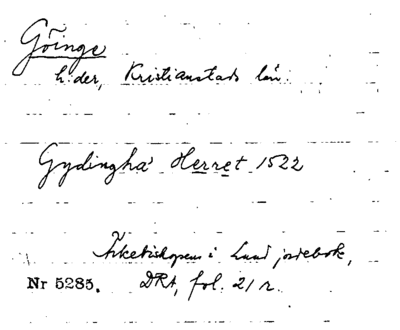 Göinge
h:der, Kristianstads län.
Gydingha' Herret 1522
Ärkebiskopens i Lund jordebok,
Nr 5285. DRA, fol. 21 r.